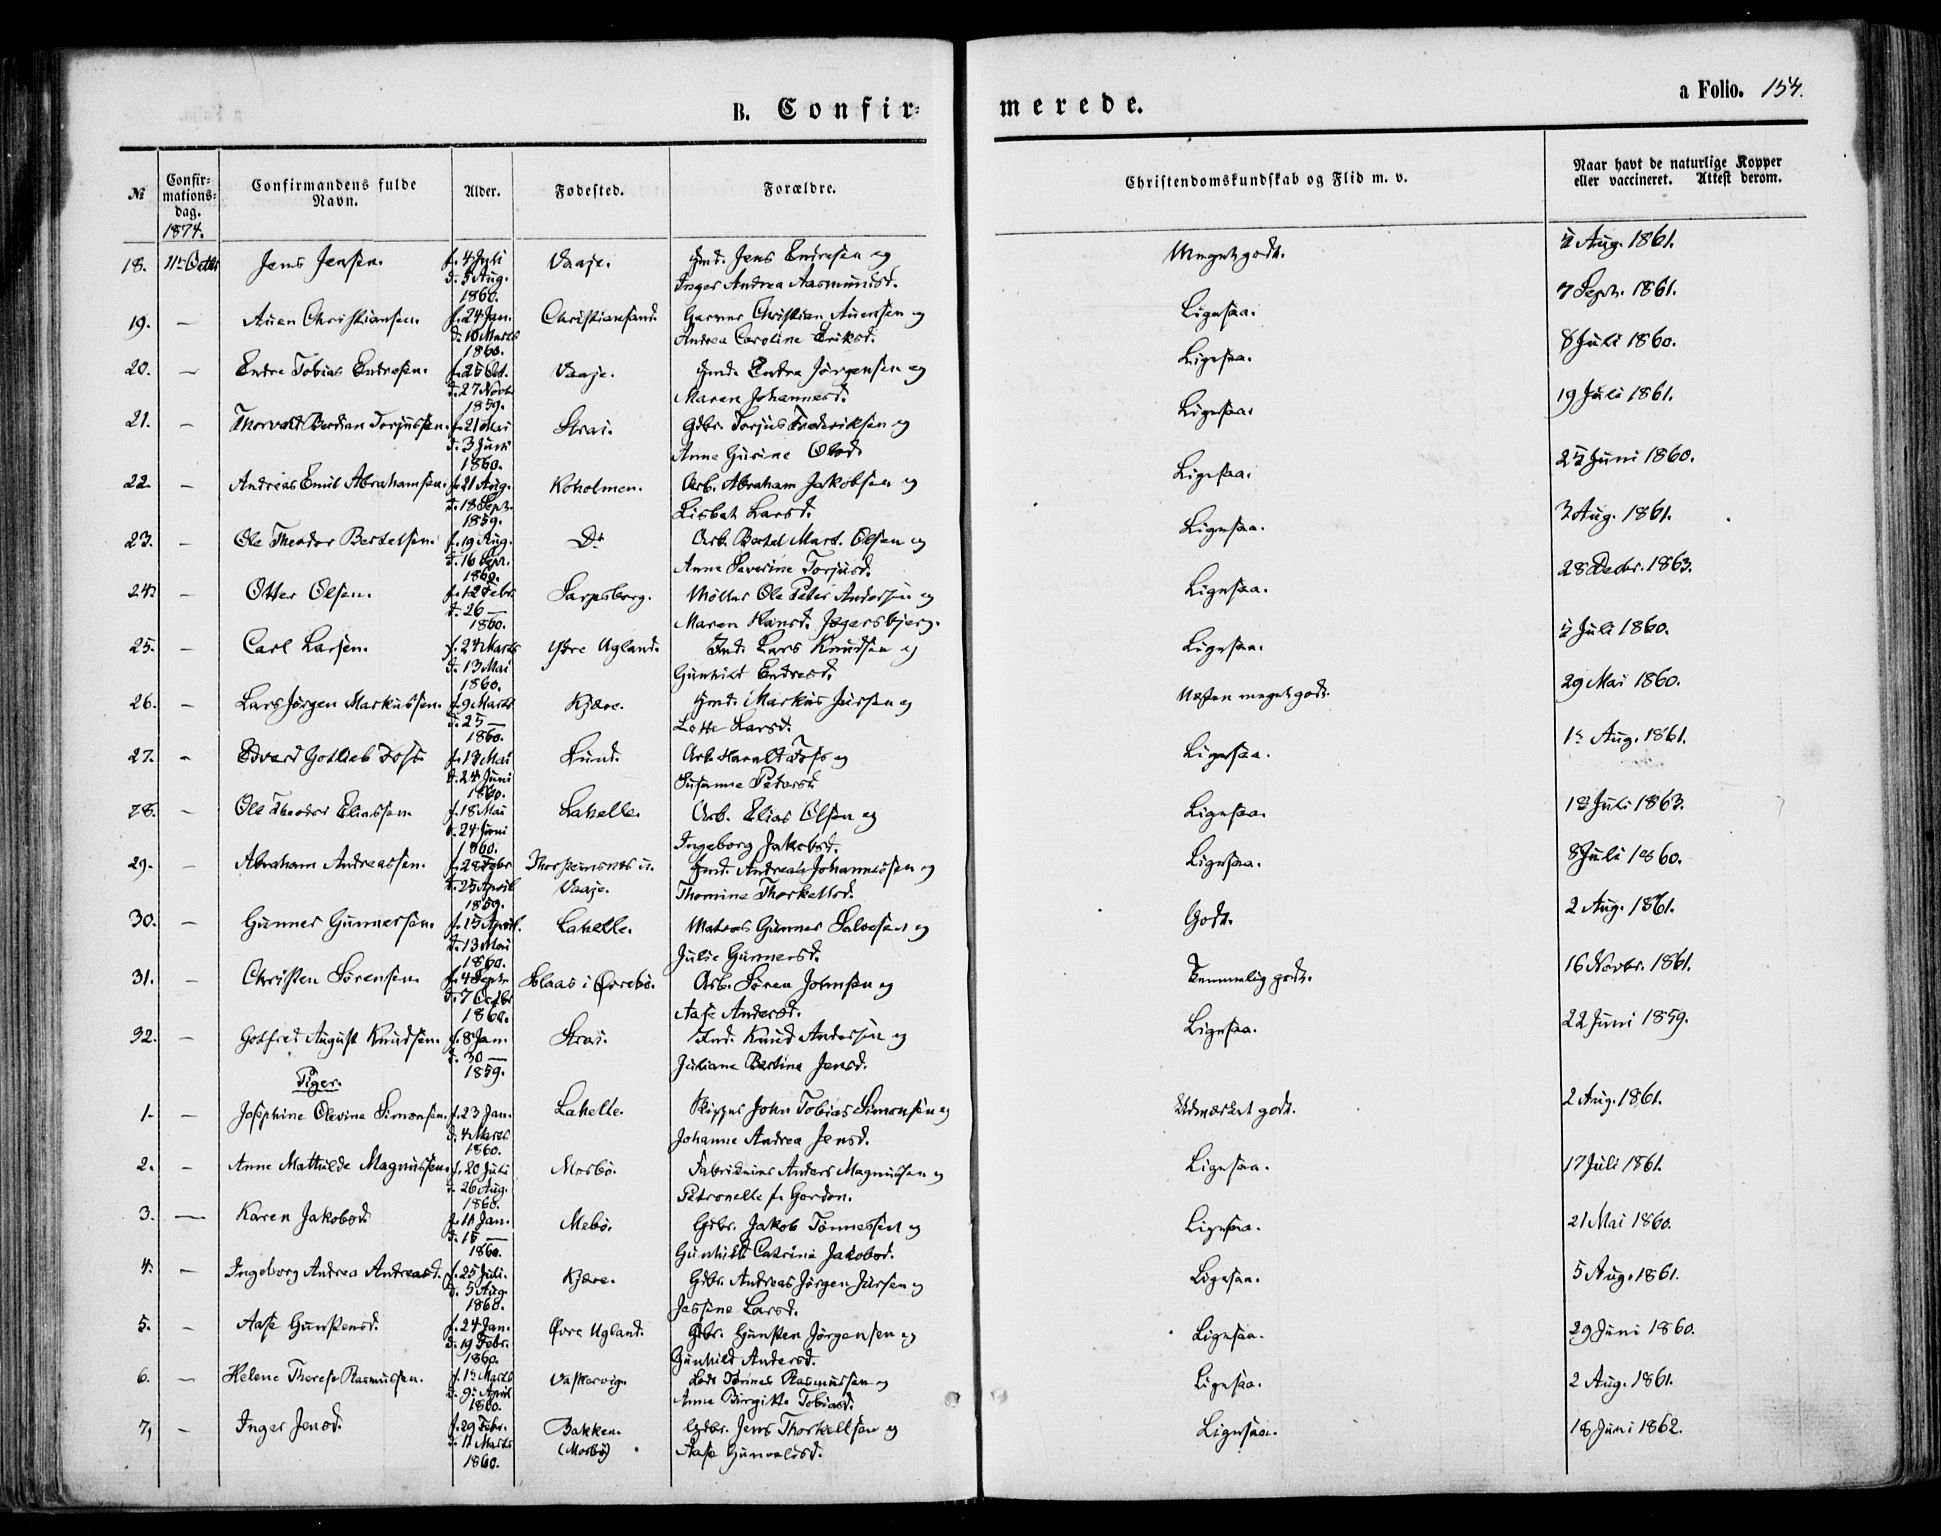 B. Confir-
merede.
a Folio. 154.
№
Confir-
mations-
dag.
1874.
Confirmandens fulde
Navn.
Alder.
Fødested.
Forældre.
Christendomskundskab og Flid m. v.
Naar havt de naturlige Kopper
eller vaccineret. Attest derom.
18. 11te Octbr Jens Jensen. f. 4 Juli Vaaje. Gmd. Jens Endresen og Meget godt. 2 Aug. 1861.
d. 5 Aug. Inger Andrea Aasmundsd.
1860.
19. — Auen Christiansen. f. 24 Jan. Christiansand. Garver Christian Auensen og Ligesaa. 7 Sept. 1861.
d. 10 Marts Andrea Caroline Eriksd.
1860.
20. — Endre Tobias Endresen. f. 25 Oct. Vaaje. Gmd. Endre Jørgensen og Ligesaa. 8 Juli 1860.
d. 27 Novbr Maren Johannesd.
1859.
21. — Thorvald Berdian Torjussen. f. 21 Mai Strai. Gdbr. Torjus Frederiksen og Ligesaa. 19 Juli 1861.
d. 3 Juni Anne Gurine Olsd.
1860.
22. — Andreas Emil Abrahamsen. f. 21 Aug. Koholmen. Arb. Abraham Jakobsen og Ligesaa. 25 Juni 1860.
d. 18 Sept. Lisbet Larsd.
1859.
23. — Ole Theodor Bertelsen. f. 19 Aug. Do Arb. Bertel Mart. Olsen og Ligesaa. 3 Aug. 1861.
d. 16 Sept. Anne Severine Torjusd.
1860.
24. — Otter Olsen. f. 12 Febr. Sarpsborg. Møller Ole Peter Andersen og Ligesaa. 28 Decbr. 1863.
d. 26 — Maren Hansd. Jegersbjerg.
1860.
25. — Carl Larsen. f. 24 Marts Ytre Ugland. Ind. Lars Knudsen og Ligesaa. 2 Juli 1860.
d. 13 Mai Gunhild Endresd.
1860.
26. — Lars Jørgen Markussen. f. 9 Marts Kjære. Gmd. Markus Jursen og Næsten meget godt. 29 Mai 1860.
d. 25 — Lotte Larsd.
1860.
27. — Edvard Gotlieb Foss. f. 13 Mai Lund. Arb. Harald Foss og Ligesaa. 1ste Aug. 1861.
d. 24 Juni Susanne Pedersd.
1860.
28. — Ole Theodor Eliassen. f. 18 Mai Lahelle. Arb. Elias Olsen og Ligesaa. 18 Juli 1863.
d. 24 Juni Ingeborg Jakobsd.
1860.
29. — Abraham Andreassen. f. 28 Febr. Gmd. Andreas Johannessen og Ligesaa. 8 Juli 1860.
d. 25 April Vaaje. Thomine Thorkelsd.
1859.
30. — Gunner Gunnersen. f. 15 April. Lahelle. Matros Gunner Salvesen og Godt. 2 Aug. 1861.
d. 13 Mai Julie Gunnersd.
1860.
31. — Christen Sørensen. f. 4 Septr Slaas i Øvrebø. Arb. Søren Johnsen og Temmelig godt. 16 Novbr. 1861.
d. 7 Octbr Aase Andersd.
1860.
32. — Gotfred August Knudsen. f. 8 Jan. Strai. Ind. Knud Andersen og Ligesaa. 22 Juni 1859.
d. 30 — Juliane Bertine Jensd.
1859.
Piger.
1. — Josephine Olevine Simonsen. f. 23 Jan. Lahelle. Skipper John Tobias Simonsen og Udmærket godt. 2 Aug. 1861.
d. 4 Marts Johanne Andrea Jensd.
1860.
2. — Anne Mathilde Magnussen. f. 20 Juli Mosbø. Anders Magnussen og Ligesaa. 17 Juli 1861.
d. 26 Aug. Petronelle f. Gordon.
1860.
3. — Karen Jakobsd. f. 11 Jan. Mebø. Gdbr. Jakob Tønnessen og Ligesaa. 21 Mai 1860.
d. 15 — Gunhild Catrine Jakobsd.
1860.
4. — Ingeborg Andrea Andreasd. f. 25 Juli. Kjære. Gdbr. Andreas Jørgen Jursen og Ligesaa. 5 Aug. 1861.
d. 5 Aug. Jessine Larsd.
1860.
5. — Aase Gunstensd. f. 24 Jan. Øvre Ugland. Gdbr. Gunsten Jørgensen og Ligesaa. 29 Juni 1860.
d. 19 Febr. Gunhild Andersd.
1860.
6. — Helene Therese Rasmussen. f. 1ste Marts Vaskervig. Lods Tørres Rasmussen og Ligesaa. 2 Aug. 1861.
d. 9de April Anne Birgitte Tobiasd.
1860.
7. — Inger Jensd. f. 29 Febr. Bakken. Gdbr. Jens Thorkellsen og Ligesaa. 18 Juni 1862.
d. 11 Marts (Mosbø) Aase Gunvaldsd.
1860.